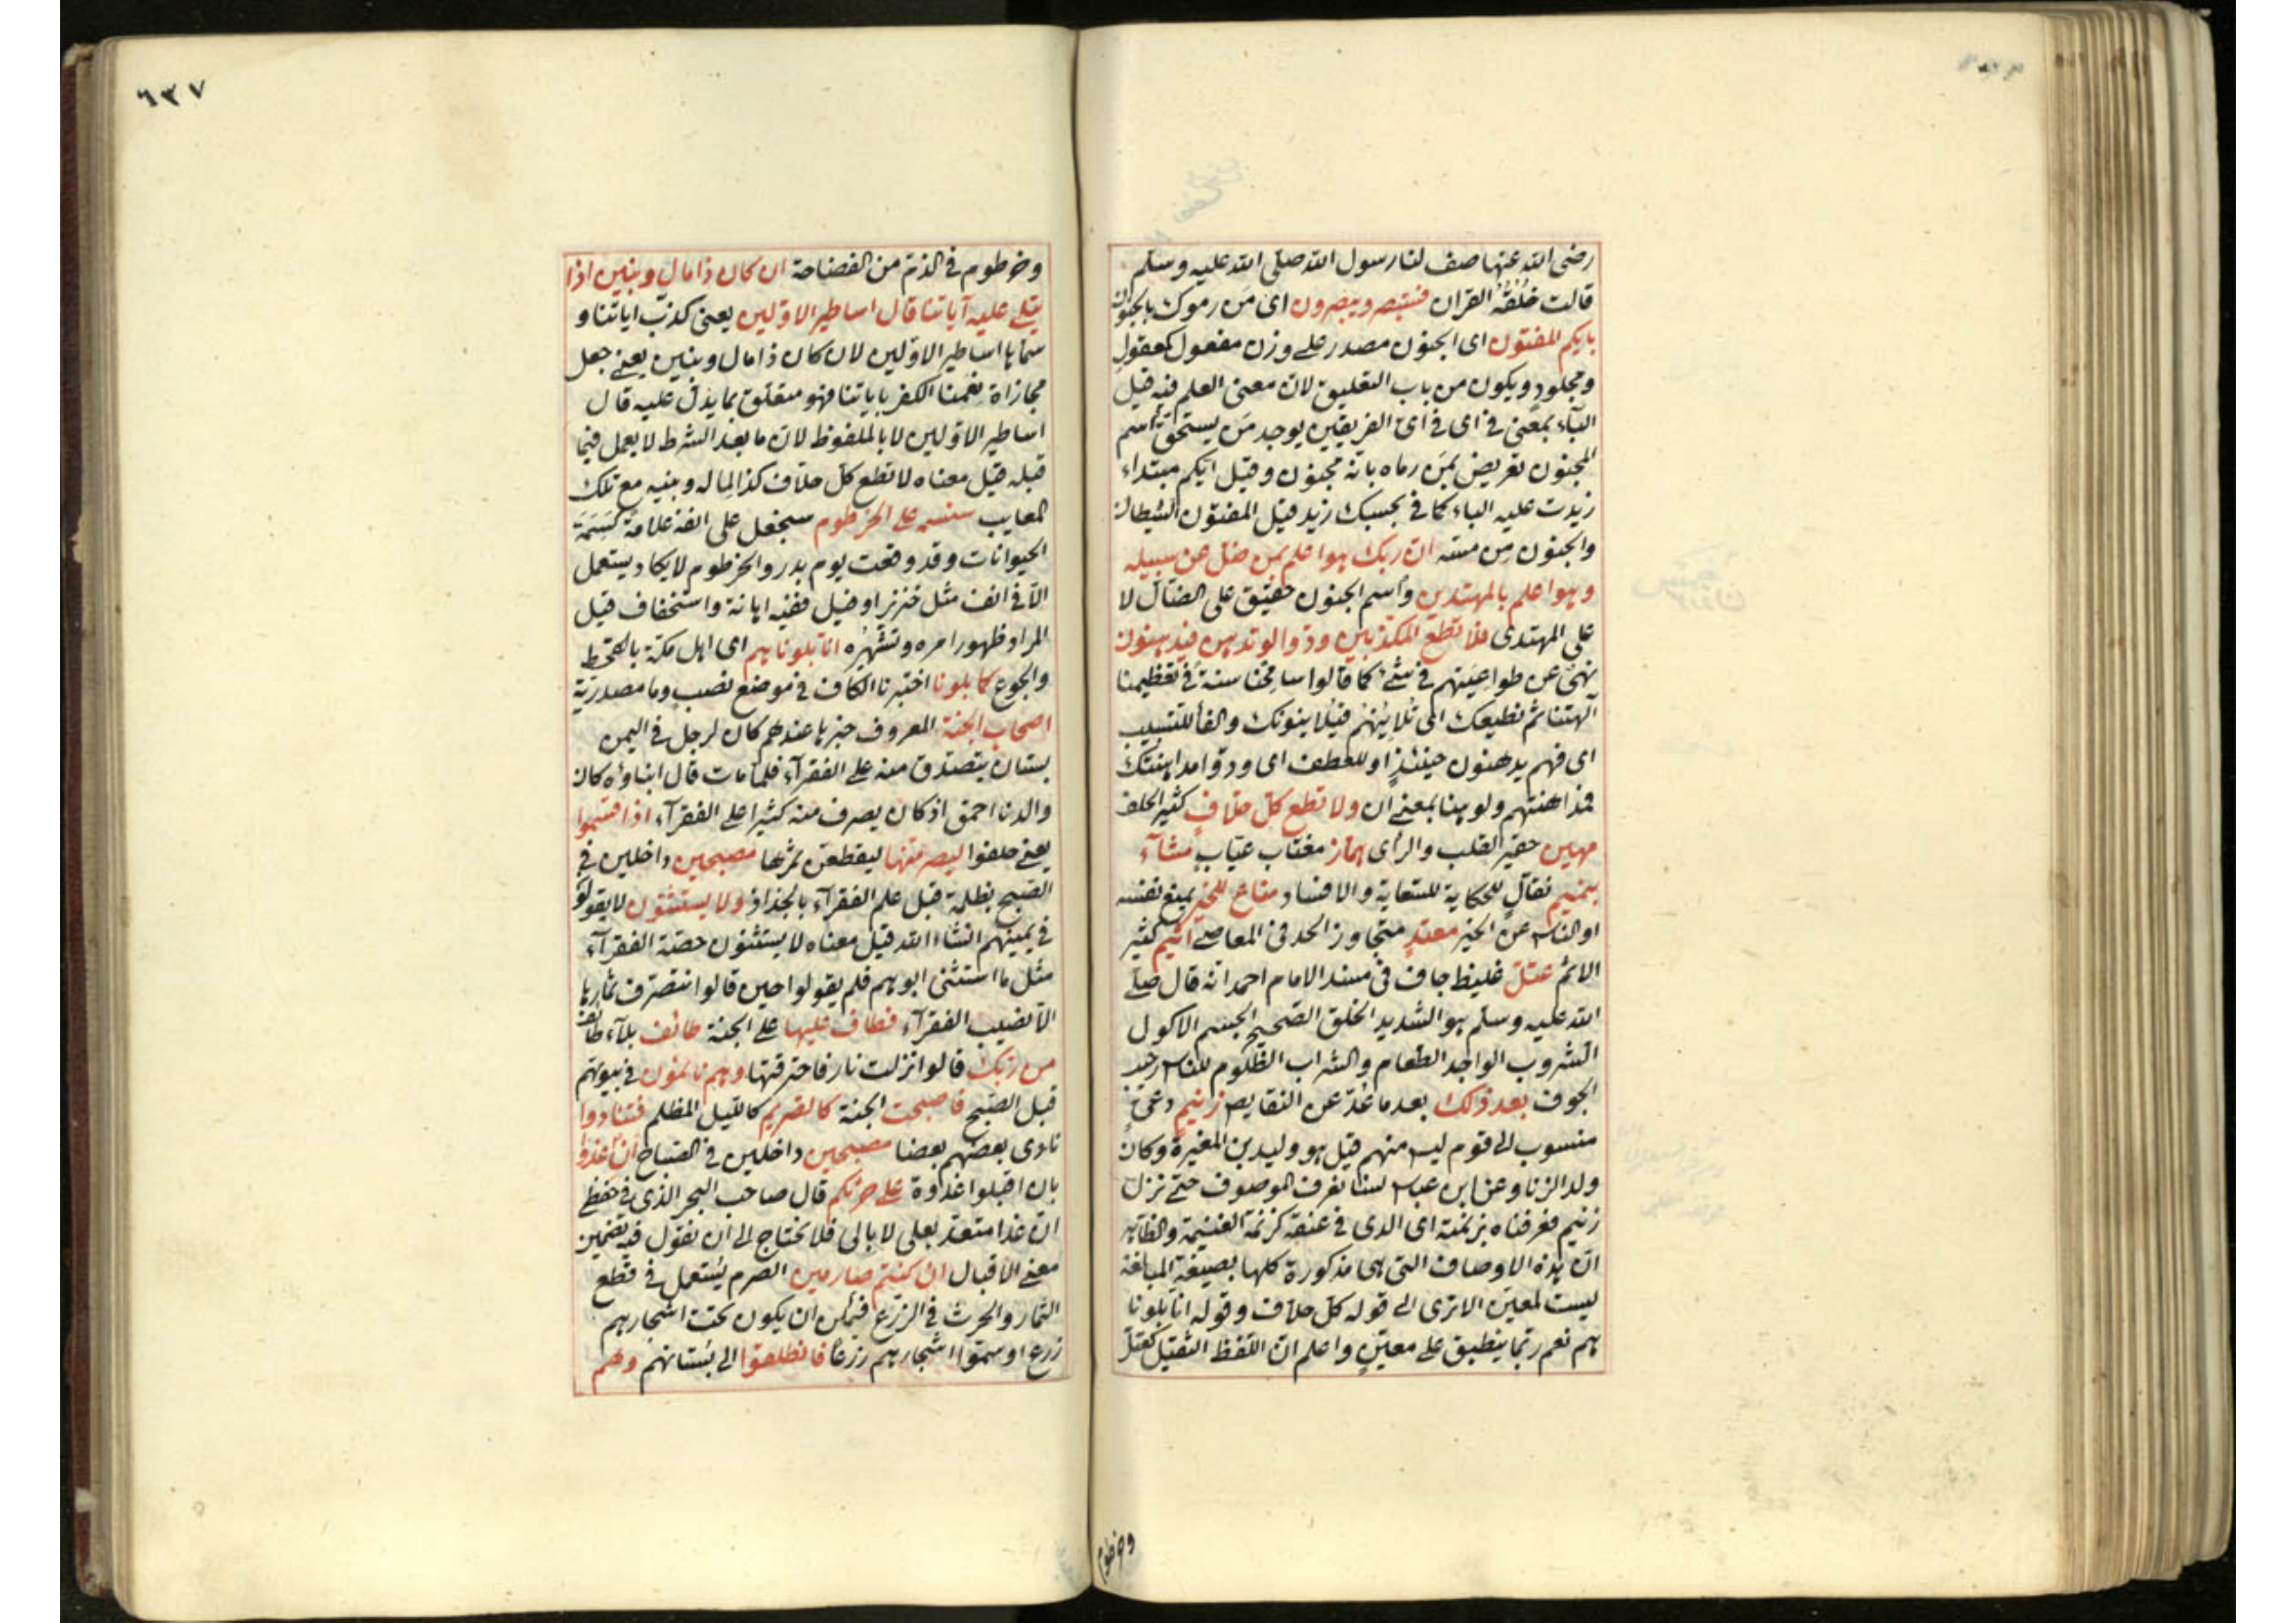 رضى الله عنها صف لنا رسول الله صلى الله عليه وسلم
قالت خُلُقُهُ القران فستبصر ويبصرون اى مَن رموك بالجنون
بايكم المفتون اى الجنون مصدر على وزن مفعول كمعقول
ومجلود ويكون من باب التعليق لان معنى العلم فيه قيل
البآء بمعنى فى اى فى اىّ الفريقين يوجد مَن يستحق اسم
المجنون تعريض بمَن رماه بانه مجنون وقيل ايكم مبتداء
زيدت عليه الباء كما فى بحسبك زيد قيل المفتون الشيطان
والجنون مِن مسّه ان ربك هو اعلم بمن ضل عن سبيله
وهو اعلم بالمهتدين واسم الجنون حقيق على الضّآل لا
على المهتدى فلا تطع المكذبين ودّوا لو تدهن فيدهنون
نهىٌ عن طواعيتهم فى شئ كما قالوا سامِحْنا سنة فى تعظيمنا
آلهتنا ثم نطيعك اى تُلايُنهم فيُلاينونك والفآ للتسبيب
اى فهم يدهنون حينئذٍ او للعطف اى ودّوا مداهنتك
فمداهنتهم ولو هنا بمعنى ان ولا تطع كلّ حلّافٍ كثير الحلف
مهين حقير القلب والراى همّاز مغتاب عيّابٍ مشّآء
بنميم نقّالٍ للحكاية للسّعاية والافساد منّاع للخير يمنع نفسه
او الناس عن الخير معتدٍ متجاوز الحد فى المعاصى اثيم كثير
الاثم عتلّ غليظ جاف فى مسند الامام احمد انه قال صلى
الله عليه وسلم هو الشديد الخلق الصّحيح الجسم الاكول
الشروب الواجد الطعام والشراب الظلوم للناس رحيب
الجوف بعد ذلك بعد ما عُدّ عن النقايص زنيم دعىّ
منسوب الى قوم ليس منهم قيل هو وليد بن المغيرة وكان
ولد الزنا وعن ابن عباس لسنا نعرف الموصوف حتى نزل
زنيم فعرفناه بزنمته اى الذى فى عنقه كزنمة الغنيمة والظاهر
ان هذه الاوصاف التى هى مذكورة كلها بصيغة المبالغة
ليست لمعيّن الا ترى الى قوله كلّ حلّاف وقوله انا بلونا
هم نعم ربّما ينطبق على معيّنٍ واعلم ان اللفظ الثقيل كعتلّ
وخرطوم
٦٣٧
وخرطوم فى الذمّ من الفصاحة ان كان ذا مال وبنين اذا
يتلى عليه آياتنا قال اساطير الاوّلين يعنى كذب اياتنا و
سمّاها اساطير الاوّلين لان كان ذا مال وبنين يعنى جعل
مجازاة نعمنا الكفر باياتنا فهو متعلّق بما يدلّ عليه قال
اساطير الاوّلين لا بالملفوظ لان ما بعد الشرط لا يعمل فيما
قبله قيل معناه لا تطع كلّ حلّاف كذا لماله وبنيه مع تلك
المعايب سنسمه على الخرطوم سيجعل على انفه علامة كَسَمَةِ
الحيوانات وقد وقعت يوم بدر والخرطوم لا يكاد يستعمل
الّا فى انف مثل خنزير او فيل ففيه اهانة واستخفاف قيل
المراد ظهور امره وتشهّره انا بلوناهم اى اهل مكة بالقحط
والجوع كما بلونا اختبرنا الكاف فى موضع نصب وما مصدريّة
اصحاب الجنة المعروف خبرها عندهم كان لرجل فى اليمن
بستان يتصدّق منه على الفقرآء فلمّا مات قال ابناؤه كان
والدنا احمق اذ كان يصرف منه كثيرا على الفقرآء اذ اقسموا
يعنى حلفوا ليصرمنها ليقطعنّ ثمرها مصبحين داخلين فى
الصّبح بظلمة قبل علم الفقرآء بالجذاذ ولا يستثنون لا يقولو
فى يمينهم انشاء الله قيل معناه لا يستثنون حصّة الفقرآء
مثل ما استثنى ابوهم فلم يقولوا حين قالوا نتصرّف ثمارها
الّا نصيب الفقرآء فطاف عليها على الجنة طائف بلآء طائف
من ربك قالوا نزلت نار فاحترقتها وهم نائمون فى بيوتهم
قبل الصّبح فاصبحت الجنة كالصّريم كاللّيل المظلم فتنادوا
نادى بعضهم بعضا مصبحين داخلين فى الصّباح ان اغدوا
بان اقبلوا غدوة على حرثكم قال صاحب البحر الذى فى حفظى
ان غدا متعدّ بعلى لا بالى فلا نحتاج الى ان نقول فيه تضمين
معنى الاقبال ان كنتم صارمين الصرم يُستعمل فى قطع
الثمار والحرث فى الزرع فيُمكن ان يكون تحت اشجارهم
زرع او سمّوا اشجارهم زرعًا فانطلقوا الى بُستانهم وهم